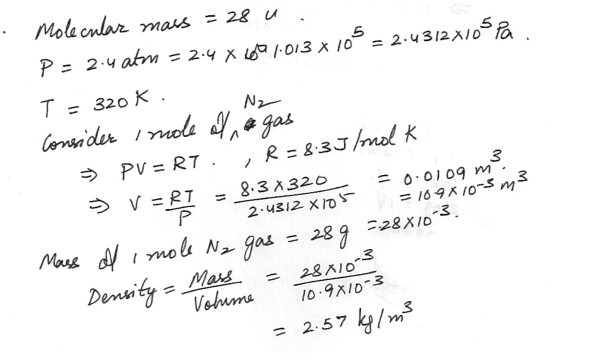 . Molecular mass = 28 u .
P = 2.4 atm = 2.4 × 1.013 × 10⁵ = 2.4312×10⁵ Pa .
T = 320 K .
Consider 1 mole of N2 gas
⇒ PV = RT . , R = 8.3 J/mol K
⇒ V = RT/P = 8.3×320 / 2.4312×10⁵ = 0.0109 m³.
= 10.9×10⁻³ m³
Mass of 1 mole N2 gas = 28 g = 28×10⁻³.
Density = Mass/Volume = 28×10⁻³ / 10.9×10⁻³
= 2.57 kg/m³